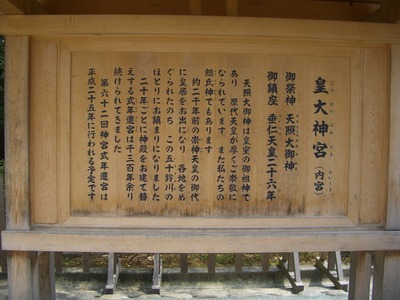 皇大神宮(内宮)
御祭神 天照大御神
御鎮座 垂仁天皇二十六年
天照大御神は皇室の御祖神で
あり 歴代天皇が厚くご崇敬に
なられています また私たちの
総氏神でもあります
約二千年前の崇神天皇の御代
に皇居をお出になり 各地をめ
ぐられたのち この五十鈴川の
ほとりにお鎮まりになりました
二十年ごとに神殿をお建て替
えする式年遷宮は千三百年余り
続けられてきました
第六十二回神宮式年遷宮は
平成二十五年に行われる予定です